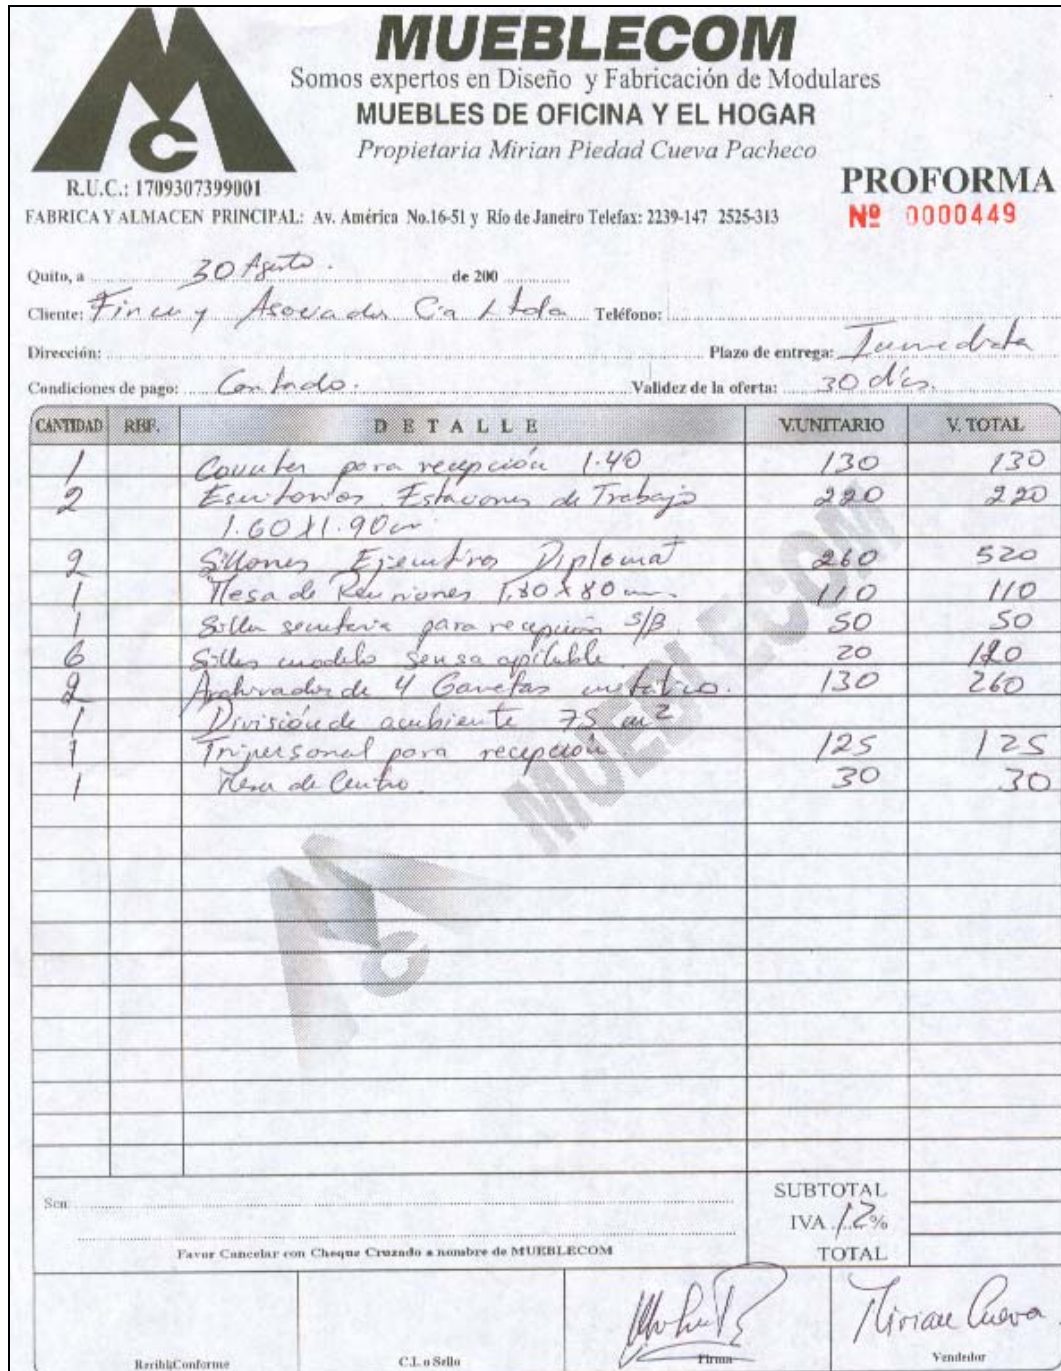 MUEBLECOM
Somos expertos en Diseño y Fabricación de Modulares
MUEBLES DE OFICINA Y EL HOGAR
Propietaria Mirian Piedad Cueva Pacheco
Mc
R.U.C.: 1709307399001
PROFORMA
FABRICA Y ALMACEN PRINCIPAL: Av. América No.16-51 y Río de Janeiro Telefax: 2239-147 2525-313
Nº 0000449
Quito, a 30 Agosto. de 200
Cliente: y Asociados Cia Ltda Teléfono:
Dirección: Plazo de entrega: Inmediata
Condiciones de pago: Contado. Validez de la oferta: 30 días.
CANTIDAD REF. DETALLE V.UNITARIO V. TOTAL
1 Counter para recepción 1.40 130 130
2 Escritorios Estaciones de Trabajo 220 220
1.60 X 1.90 cm
2 Sillones Ejecutivos Diplomat 260 520
1 Mesa de Reuniones 1,80 x 80 110 110
1 Silla secretaria para recepción S/B 50 50
6 Sillas modelo sensa apilable 20 120
2 Archivador de 4 Gavetas metálico. 130 260
1 División de ambiente 75 m2
1 Tripersonal para recepción 125 125
1 Mesa de Centro 30 30
MUEBLECOM
Son:
SUBTOTAL
IVA 12%
Favor Cancelar con Cheque Cruzado a nombre de MUEBLECOM
TOTAL
Mirian Cueva
Recibí Conforme C.I. o Sello Firma Vendedor